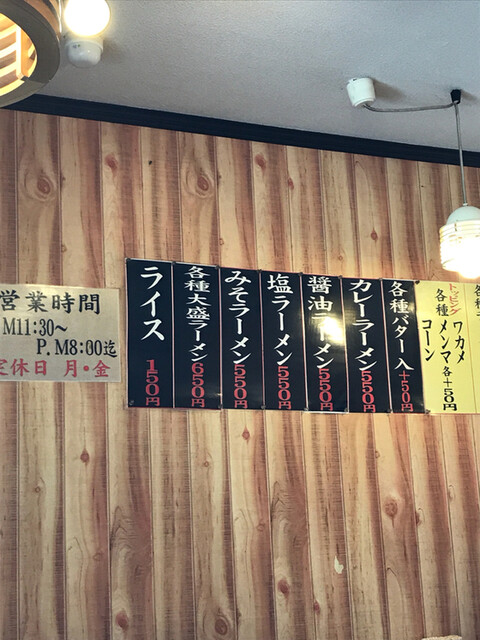 各種
トッピング
各種 ワカメ
メンマ 各+50円
コーン
各種バター入 +50円
カレーラーメン 550円
醤油ラーメン 550円
塩ラーメン 550円
みそラーメン 550円
各種大盛ラーメン 650円
ライス 150円
営業時間
M11:30〜
P.M8:00迄
定休日 月・金